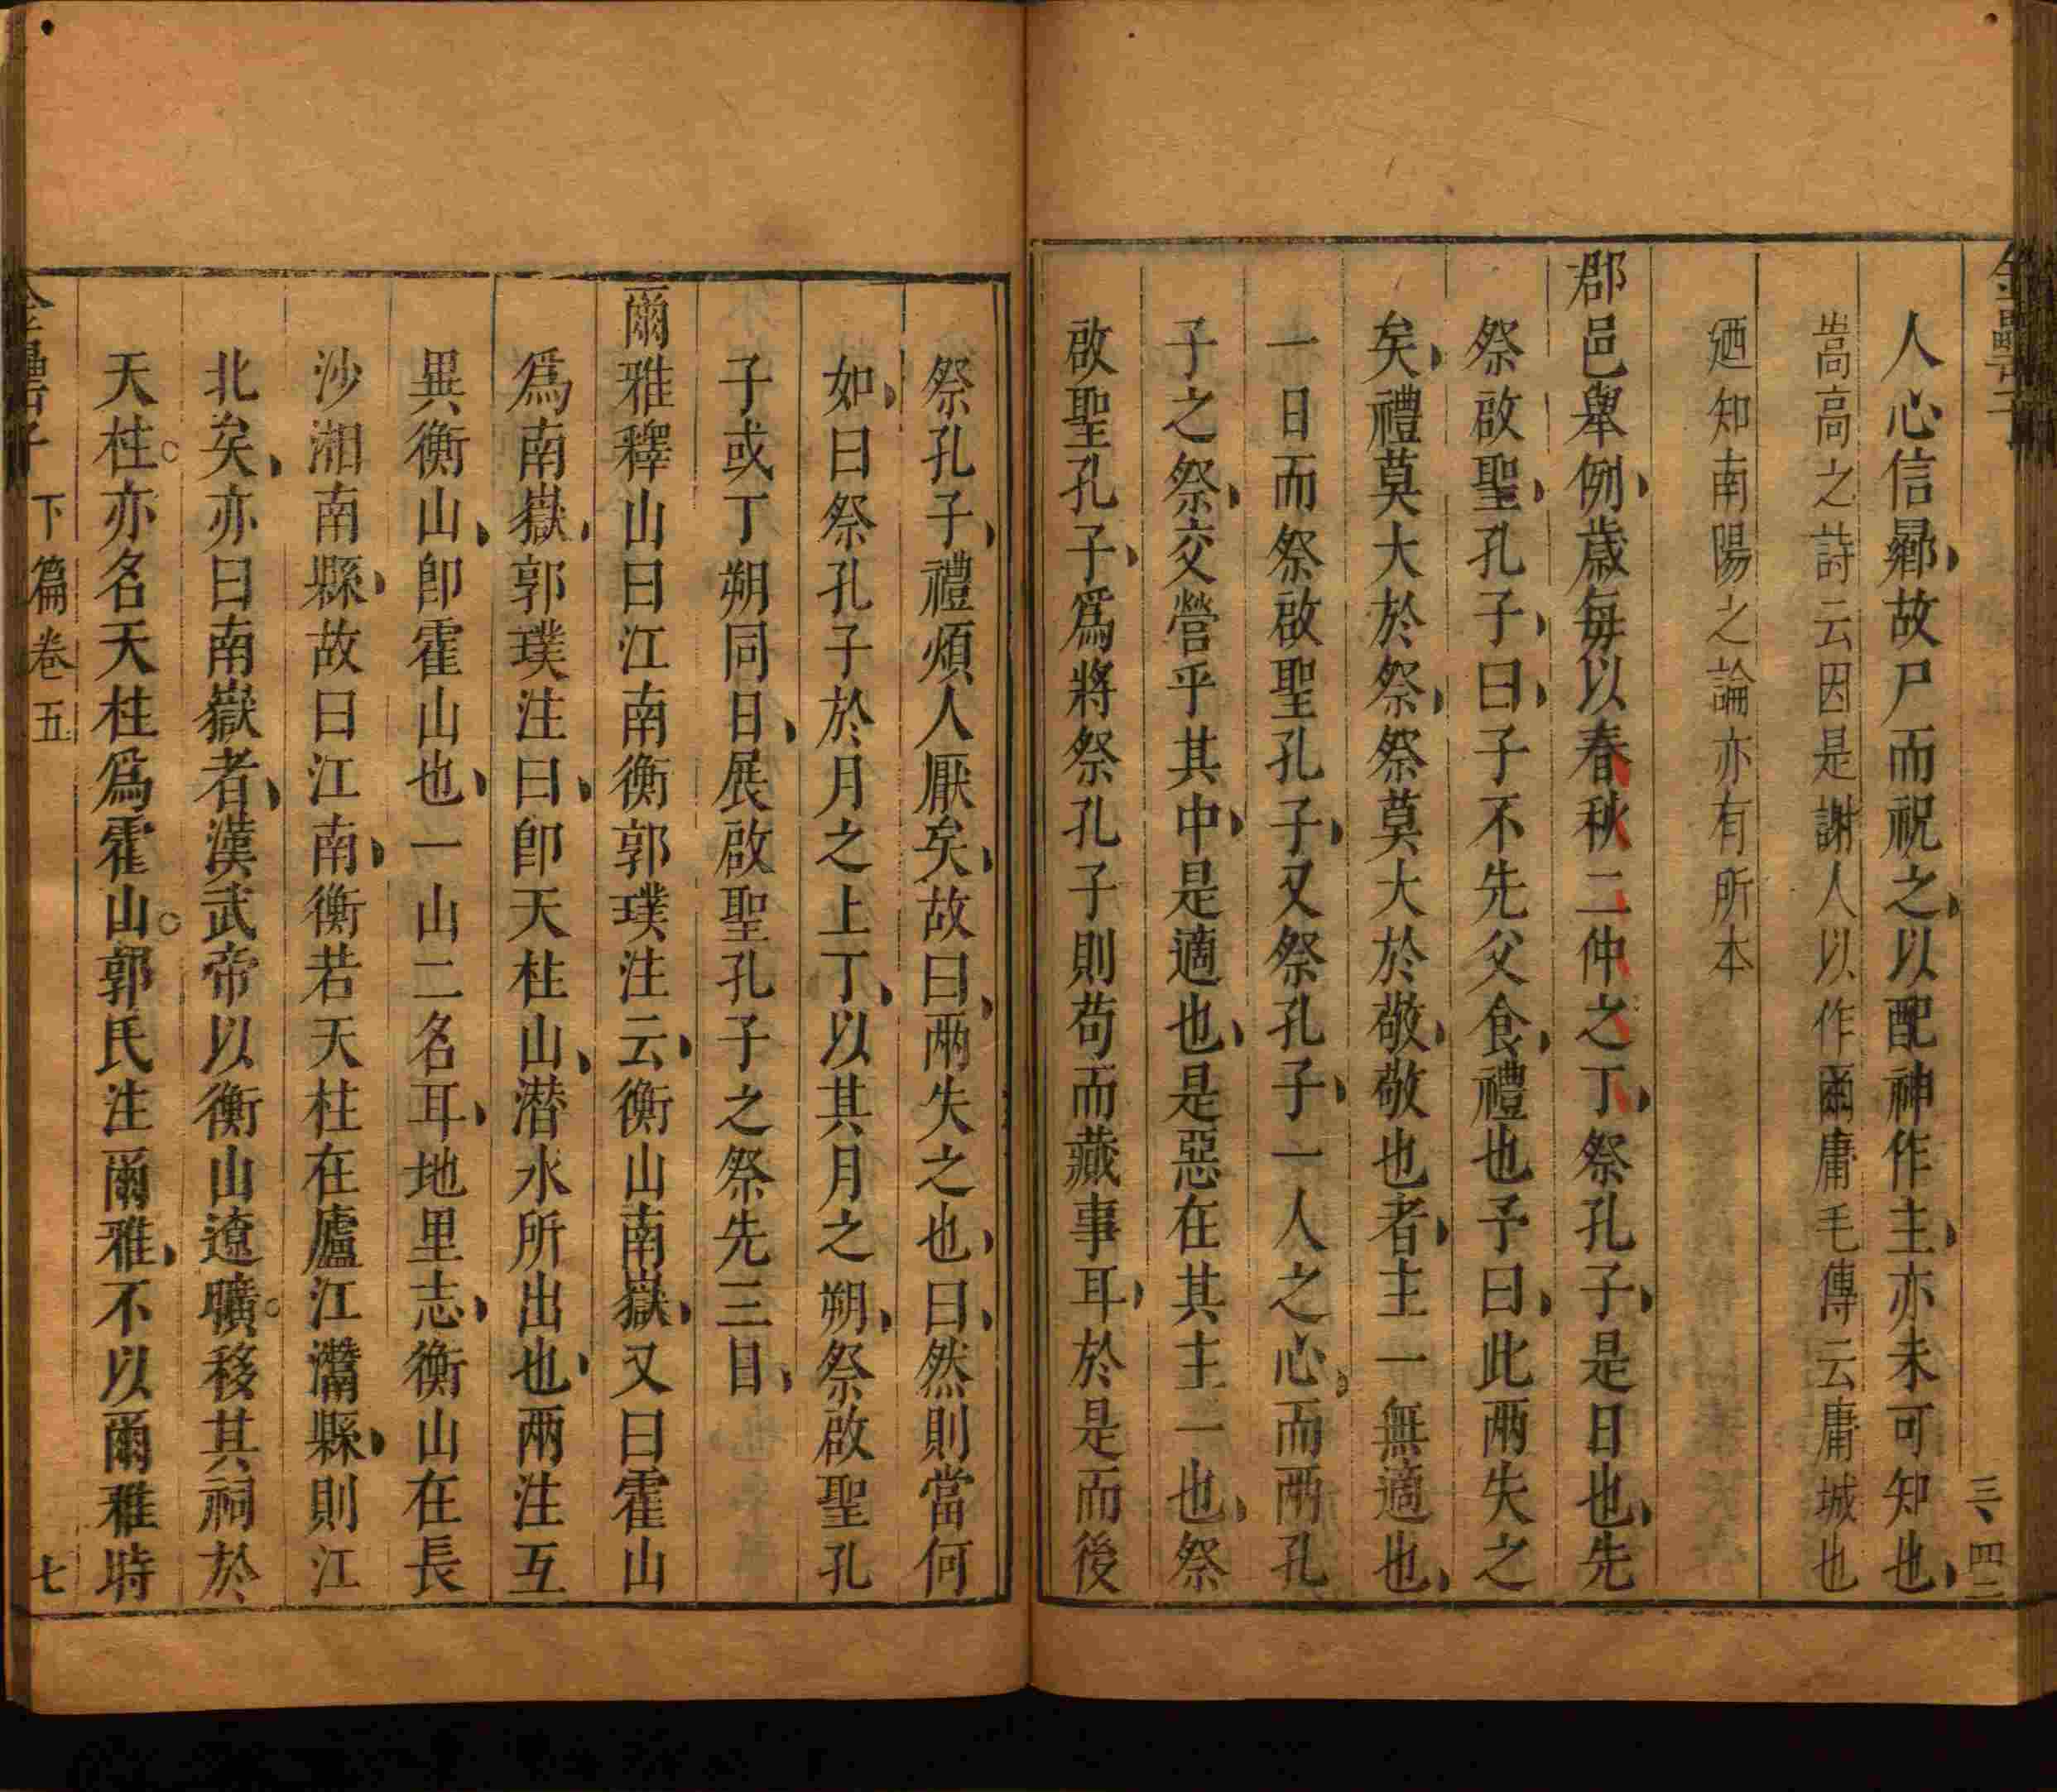 人心信嚮故尸而祝之以配神作主亦未可知也
嵩高之詩云因是謝人以作爾庸毛傳云庸城也
廼知南陽之論亦有所本
郡邑舉例歲每以春秋二仲之丁祭孔子是日也先
祭啟聖孔子曰子不先父食禮也予曰此兩失之
矣禮莫大於祭祭莫大於敬敬也者主一無適也
一日而祭啟聖孔子又祭孔子一人之心而兩孔
子之祭交營乎其中是適也是惡在其主一也祭
啟聖孔子為將祭孔子則苟而蕆事耳於是而後
祭孔子禮煩人厭矣故曰兩失之也曰然則當何
如曰祭孔子於月之上丁以其月之朔祭啟聖孔
子或丁朔同日展啟聖孔子之祭先三日
爾雅釋山曰江南衡郭璞注云衡山南嶽又曰霍山
為南嶽郭璞注曰卽天柱山潛水所出也兩注互
異衡山卽霍山也一山二名耳地里志衡山在長
沙湘南縣故曰江南衡若天柱在廬江灊縣則江
北矣亦曰南嶽者漢武帝以衡山遼曠移其祠於
天柱亦名天柱為霍山郭氏注爾雅不以爾雅時
下篇卷五
七